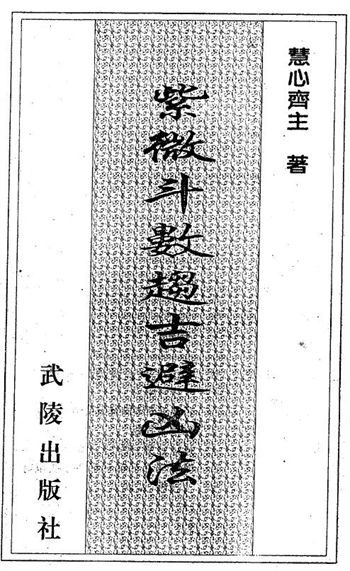 慧心齊主 著
紫微斗數趨吉避凶法
武陵出版社